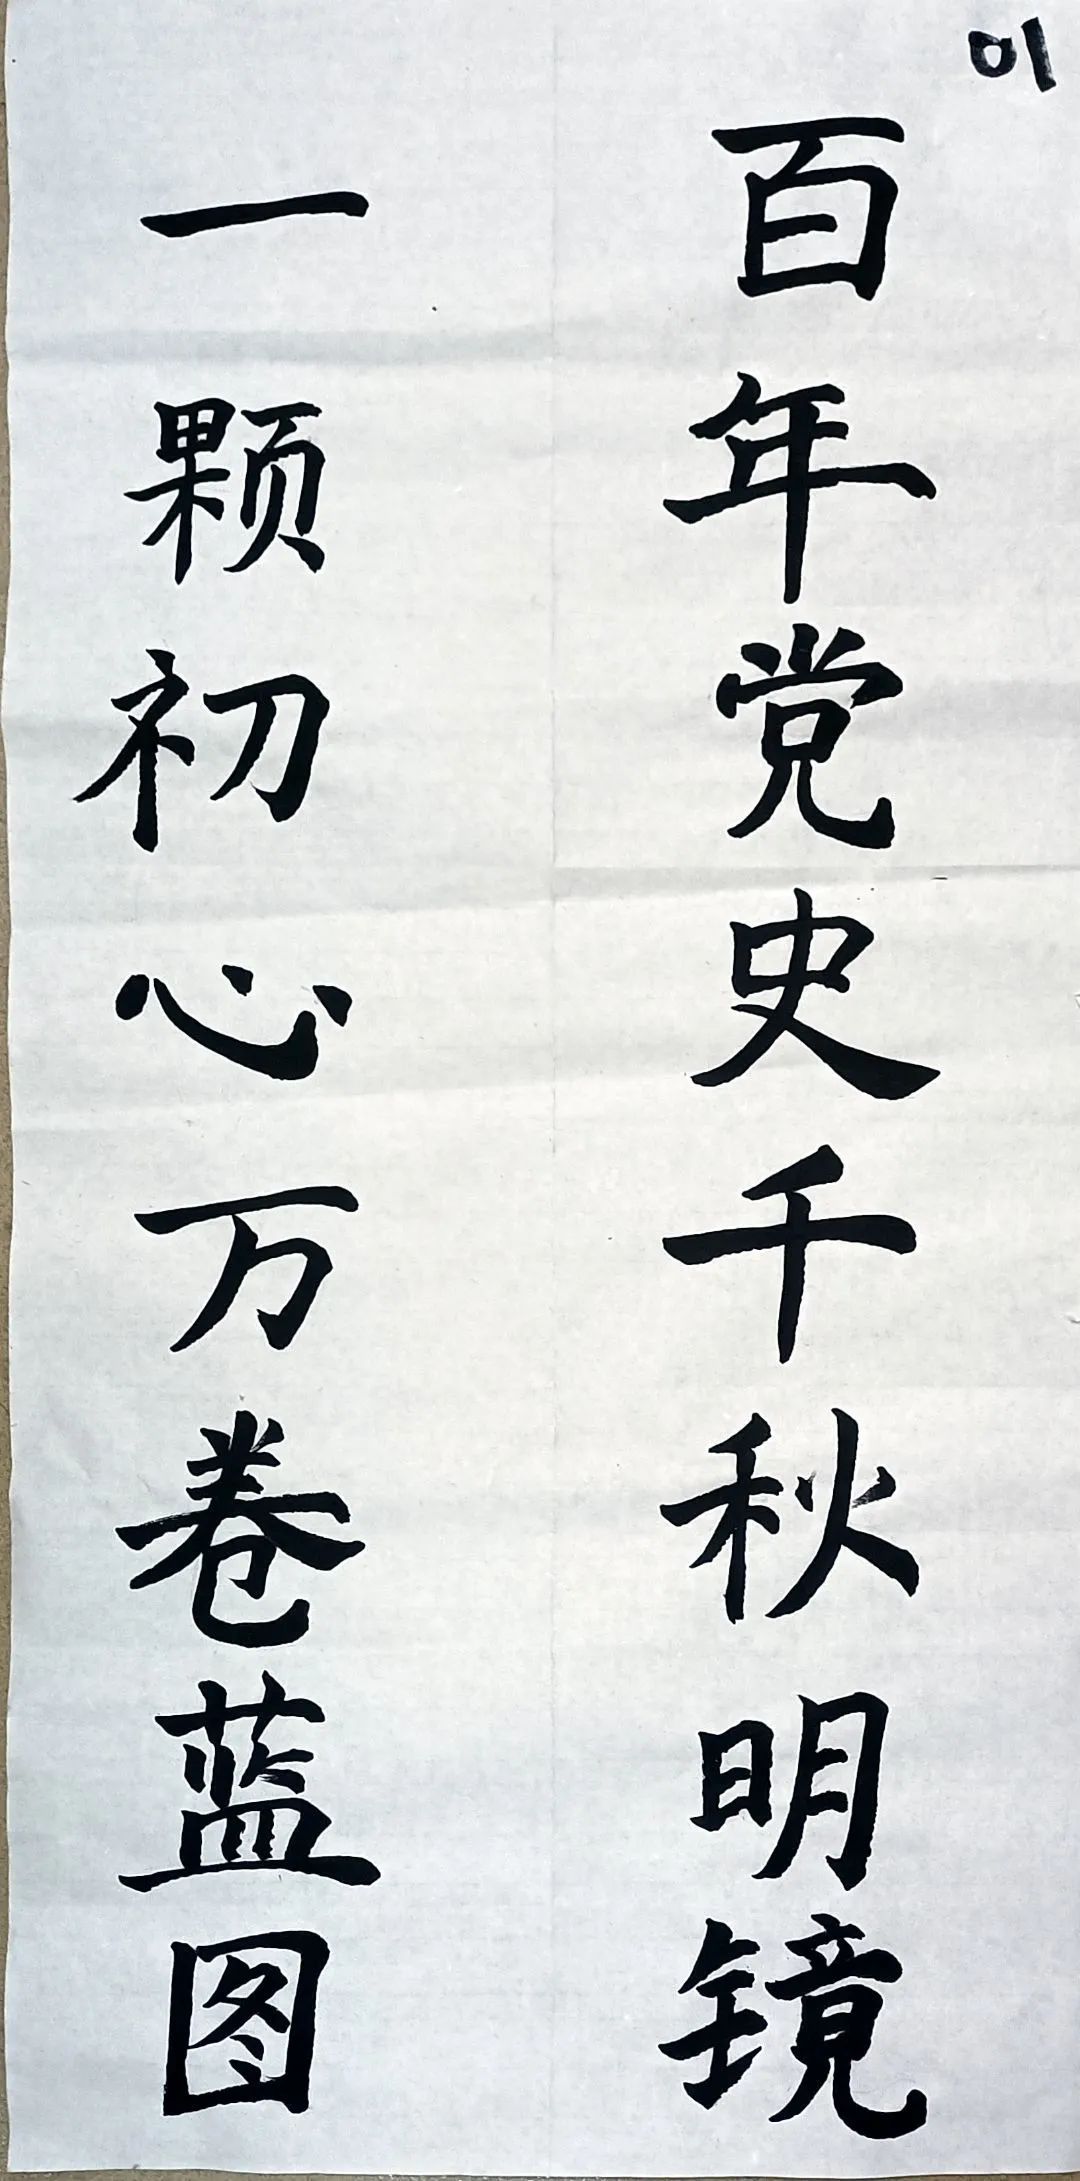 01
百年党史千秋明镜
一颗初心万卷蓝图